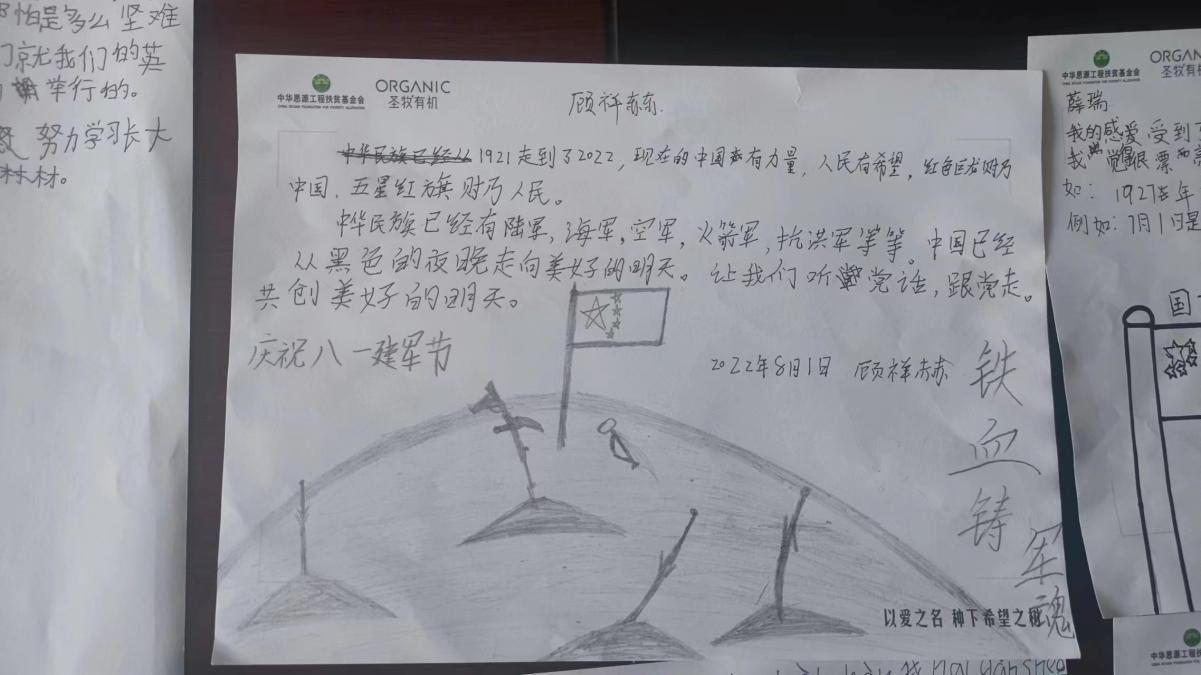 怕是多么坚难
们就我们的英
举行的。
努力学习长大
材。
中华思源工程扶贫基金会
ORGANIC
圣牧有机
顾祥赫
中华民族已经从1921走到了2022，现在的中国有力量，人民有希望，红色巨龙财乃
中国，五星红旗财乃人民。
中华民族已经有陆军，海军，空军，火箭军，抗洪军等等。中国已经
从黑色的夜晚走向美好的明天。让我们听党话，跟党走。
共创美好的明天。
庆祝八一建军节
2022年8月1日 顾祥赫
铁血铸军魂
以爱之名 种下希望之
中华思源工程扶贫基金会
ORGAN
圣牧有机
薛瑞
我的感爱受到了
我觉得很漂
如：1927年
例如：7月1日是
国
中华思源工程扶贫基金